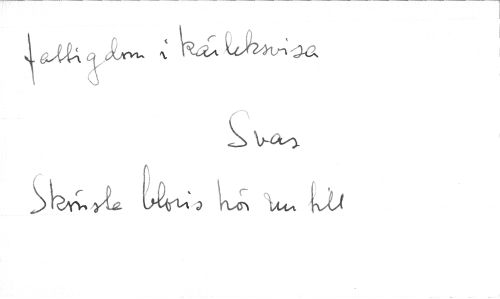 fattigdom i kärleksvisa
Svar
Skönste Cloris hör nu till